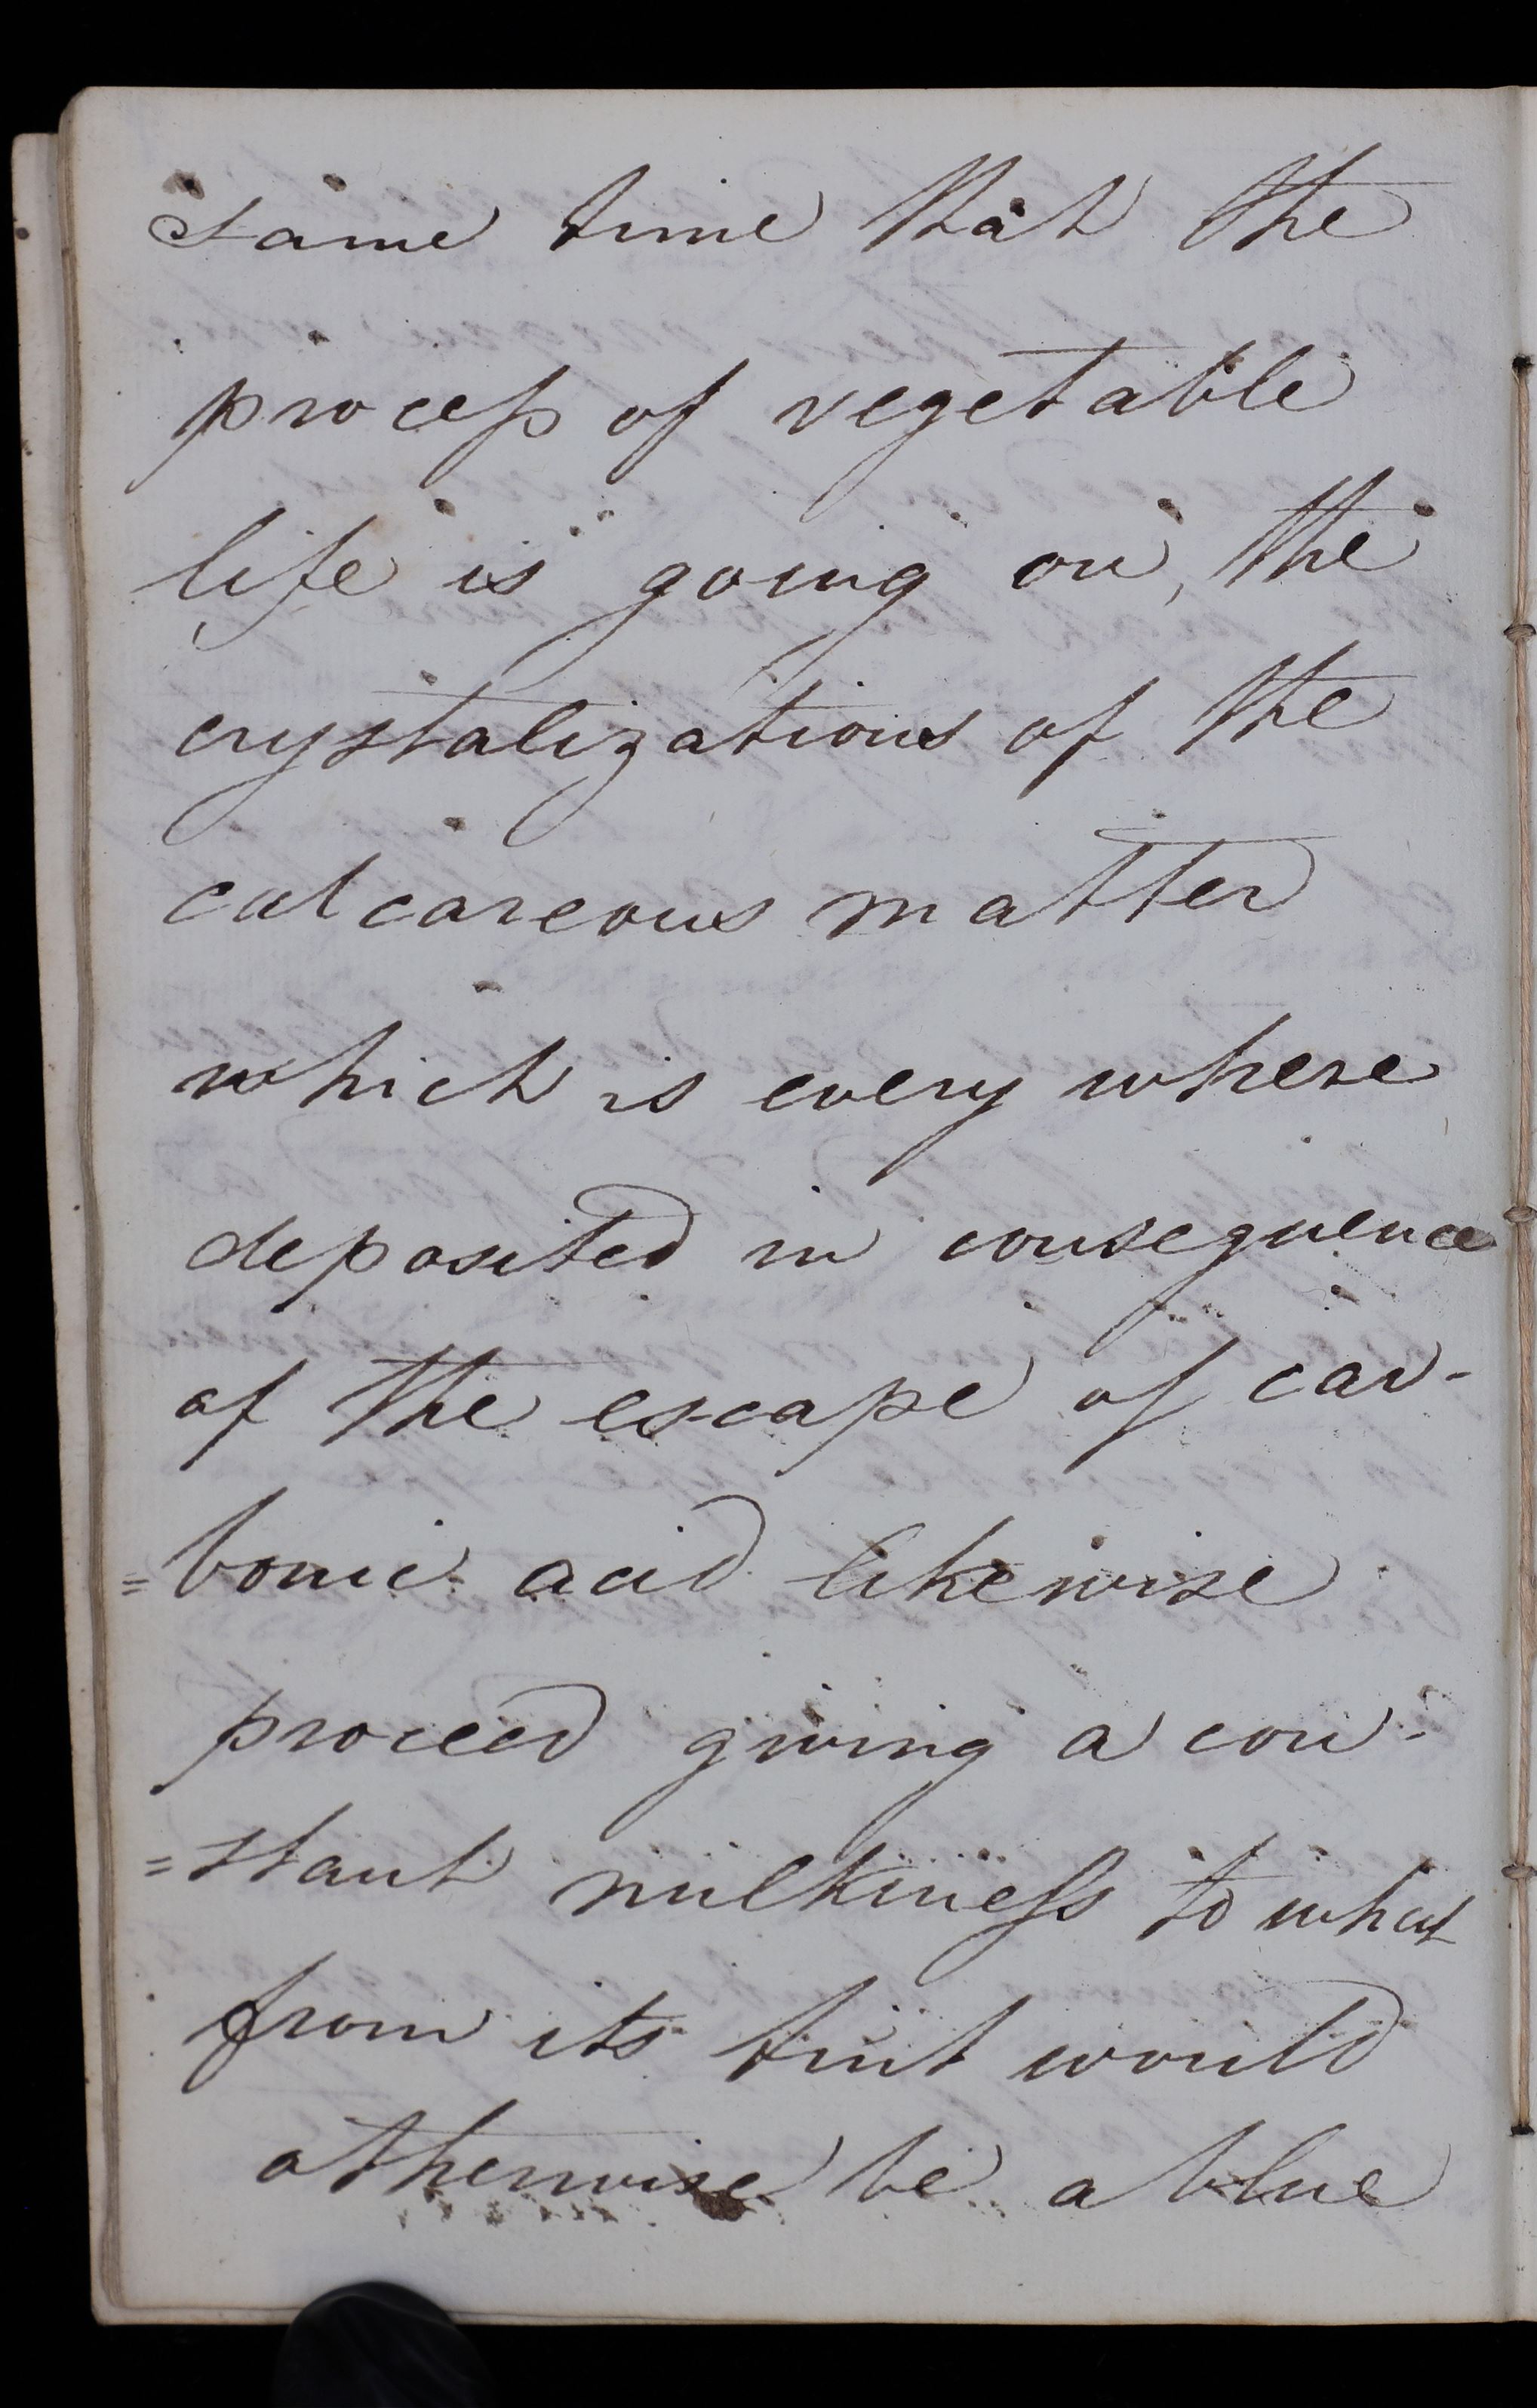 same time that the
process of vegetable
life is going on, the
crystalizations of the
calcareous matter
which is every where
deposited in consequence
of the escape of car-
=bonic acid likewise
proceed giving a con-
=stant milkiness to what
from its tint would
otherwise be a blue